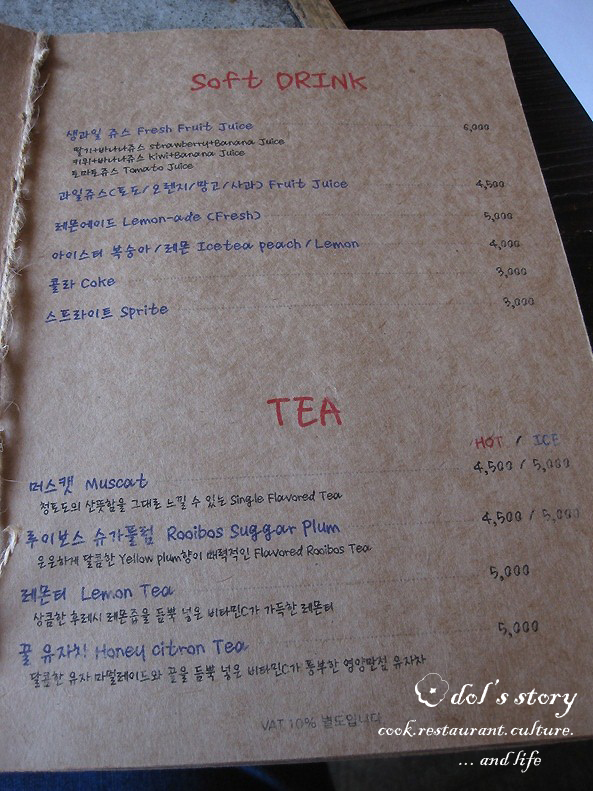 Soft DRINK
생과일 쥬스 Fresh Fruit Juice 6,000
딸기+바나나쥬스 strawberry+Banana Juice
키위+바나나쥬스 Kiwi+Banana Juice
토마토쥬스 Tomato Juice
과일쥬스(포도/오렌지/망고/사과) Fruit Juice 4,500
레몬에이드 Lemon-ade (Fresh) 5,000
아이스티 복숭아/레몬 Icetea peach/Lemon 4,000
콜라 Coke 3,000
스프라이트 Sprite 3,000
TEA
HOT / ICE
머스캣 Muscat 4,500 / 5,000
청포도의 산뜻함을 그대로 느낄 수 있는 Single Flavored Tea
루이보스 슈가플럼 Rooibos Suggar Plum 4,500 / 5,000
은은하게 달콤한 Yellow plum향이 매력적인 Flavored Rooibos Tea
레몬티 Lemon Tea 5,000
상큼한 후레시 레몬즙을 듬뿍 넣은 비타민C가 가득한 레몬티
꿀 유자차 Honey citron Tea 5,000
달콤한 유자 마멀레이드와 꿀을 듬뿍 넣은 비타민C가 풍부한 영양만점 유자차
VAT 10% 별도입니다
dol's story
cook.restaurant.culture.
... and life